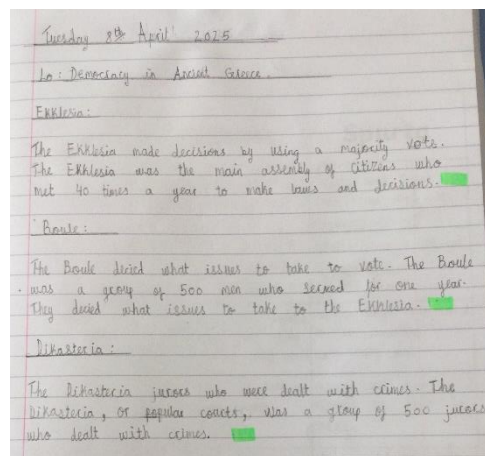 Tuesday 8th April 2025
Lo: Democracy in Ancient Greece.
Ekklesia:
The Ekklesia made decisions by using a majority vote.
The Ekklesia was the main assembly of citizens who
met 40 times a year to make laws and decisions.
Boule:
The Boule decied what issues to take to vote. The Boule
was a group of 500 men who served for one year.
They decied what issues to take to the Ekklesia.
Dikasteria:
The Dikasteria jurors who were dealt with crimes. The
Dikasteria, or popular courts, was a group of 500 jurors
who dealt with crimes.